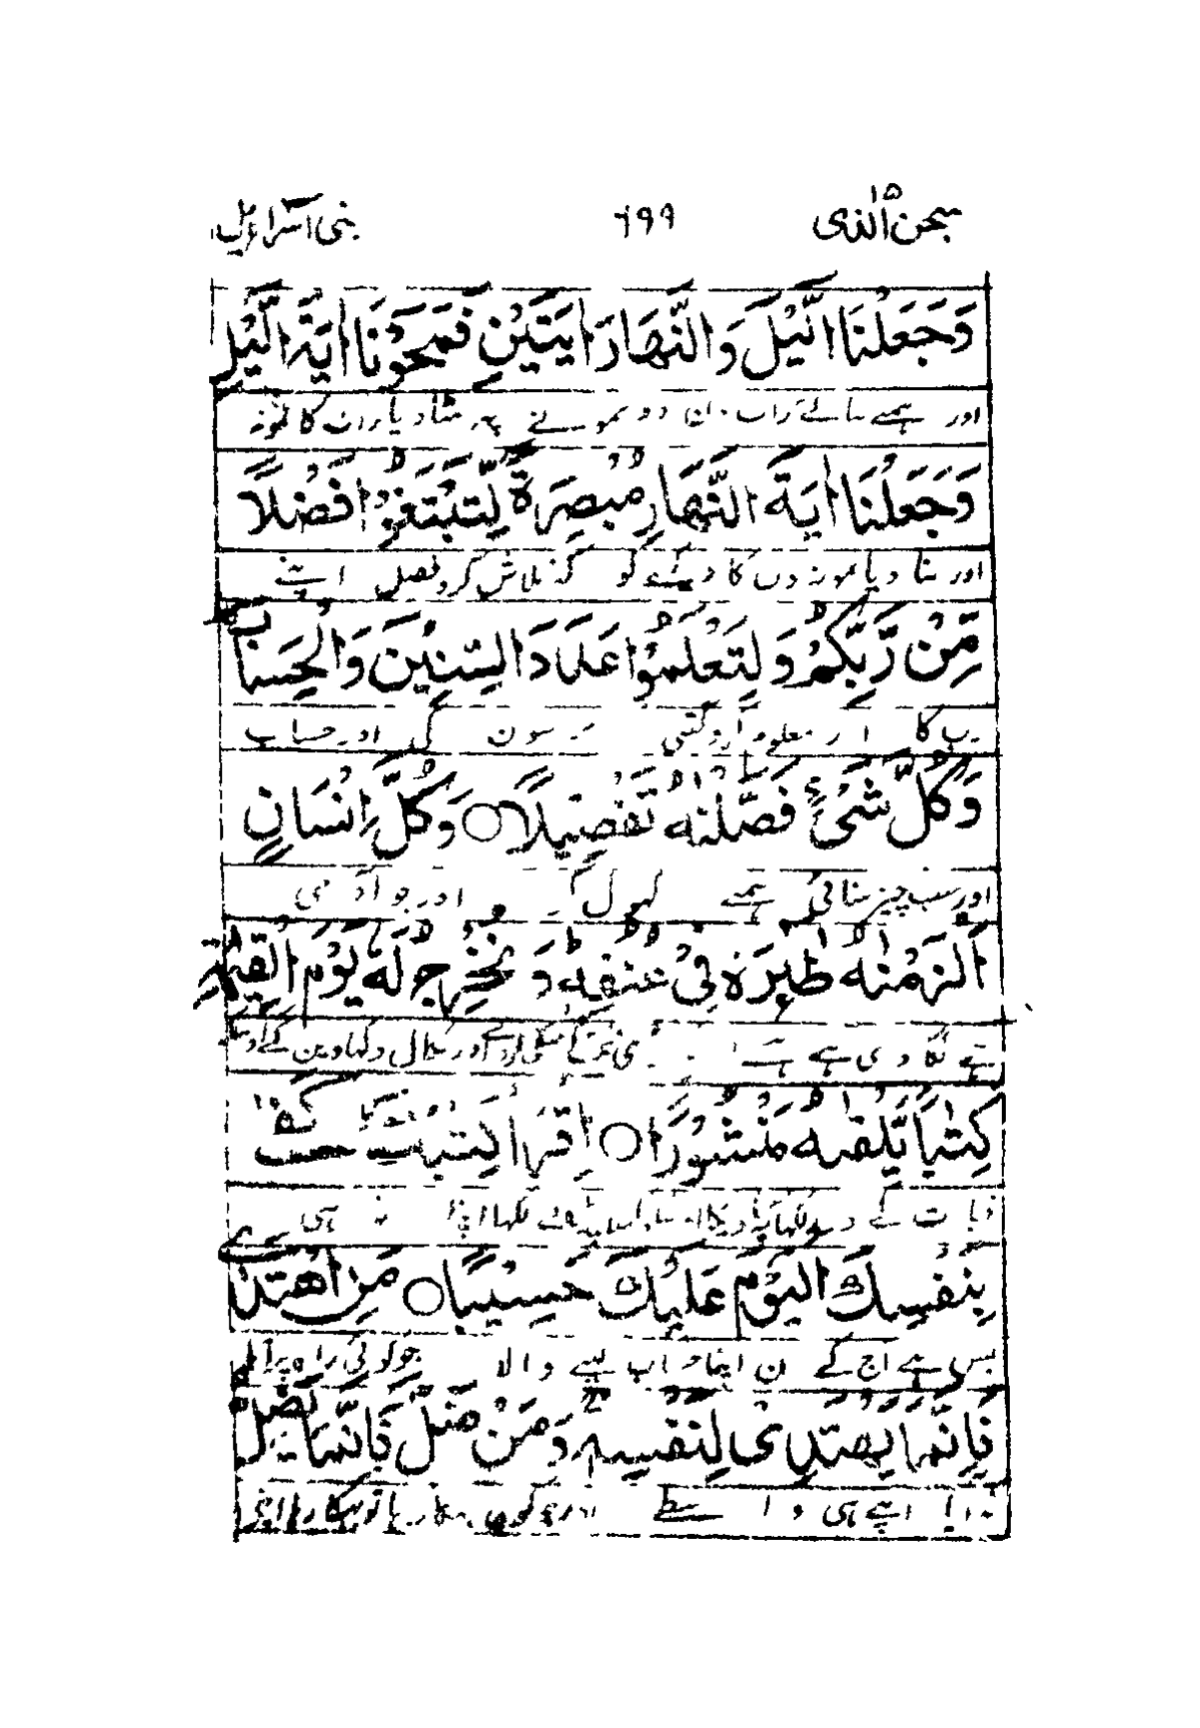 سبحن الذی ۱۵ ۶۹۹ بنی اسراءیل
وَجَعَلْنَا الَّيْلَ وَالنَّهَارَ اٰيَتَيْنِ فَمَحَوْنَا اٰيَةَ الَّيْلِ
اور ہمنے بنائے رات دو نمونے پھر مٹا دیا رات کا نمونہ
وَجَعَلْنَا اٰيَةَ النَّهَارِ مُبْصِرَةً لِّتَبْتَغُوْا فَضْلًا
اور بنا دیا نمونہ دن کا دیکھنے کو کہ تلاش کرو فضل اپنے
مِّنْ رَّبِّكُمْ وَلِتَعْلَمُوْا عَدَدَ السِّنِيْنَ وَالْحِسَابَ
رب کا اور معلوم کرو گنتی برسون کی اور حساب
وَكُلَّ شَيْءٍ فَصَّلْنٰهُ تَفْصِيْلًا ○ وَكُلَّ اِنْسَانٍ
اور سب چیز سنائی ہمنے کھول کر اور جو آدمی
اَلْزَمْنٰهُ طٰٓئِرَهٗ فِيْ عُنُقِهٖ وَنُخْرِجُ لَهٗ يَوْمَ الْقِيٰمَةِ
ہے لگا دی ہے ہمنے اور نکال دکھاوین گے اوسکو
كِتٰبًا يَّلْقٰىهُ مَنْشُوْرًا ○ اِقْرَاْ كِتٰبَكَ كَفٰى
لکھا پڑھ لے لکھا اپنا ہی
بِنَفْسِكَ الْيَوْمَ عَلَيْكَ حَسِيْبًا ○ مَنِ اهْتَدٰى
بس ہے آج کے دن اپنا حساب لینے والا جو کوئی راہ پر آیا
فَاِنَّمَا يَهْتَدِيْ لِنَفْسِهٖ وَمَنْ ضَلَّ فَاِنَّمَا يَضِلُّ
آیا اپنے ہی واسطے اور جو کوئی بہکا رہا تو بہکا رہا اپنے